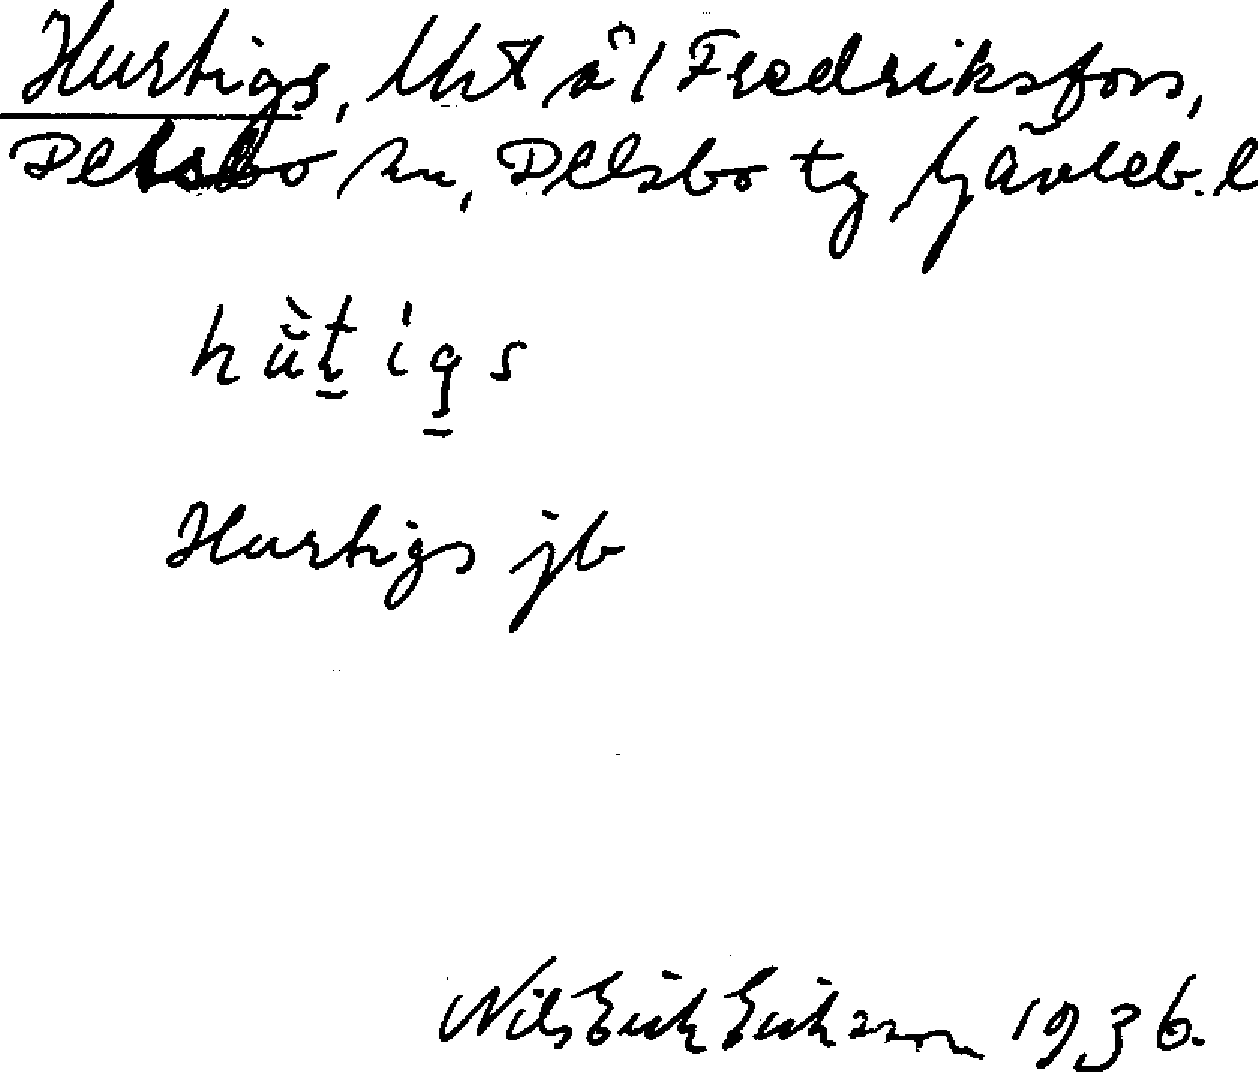 Hurtigs, lht å 1 Fredriksfors,
Delsbo sn, Delsbo tg Gävleb. l
hùtigs
Hurtigs jb
Nils Erik Eriksson 1936.